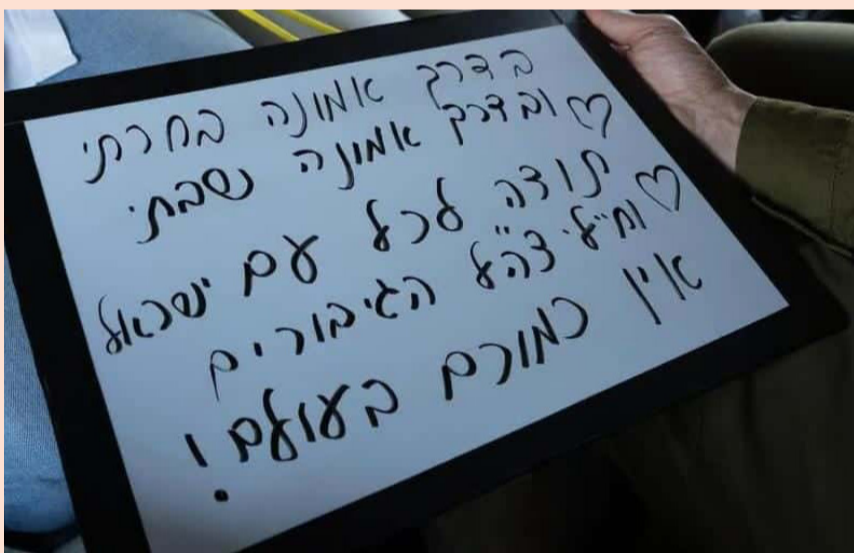 בדרך אמונה בחרתי
ובדרך אמונה שבתי ♡
תודה לכל עם ישראל
וחיילי צה״ל הגיבורים ♡
אין כמוכם בעולם!